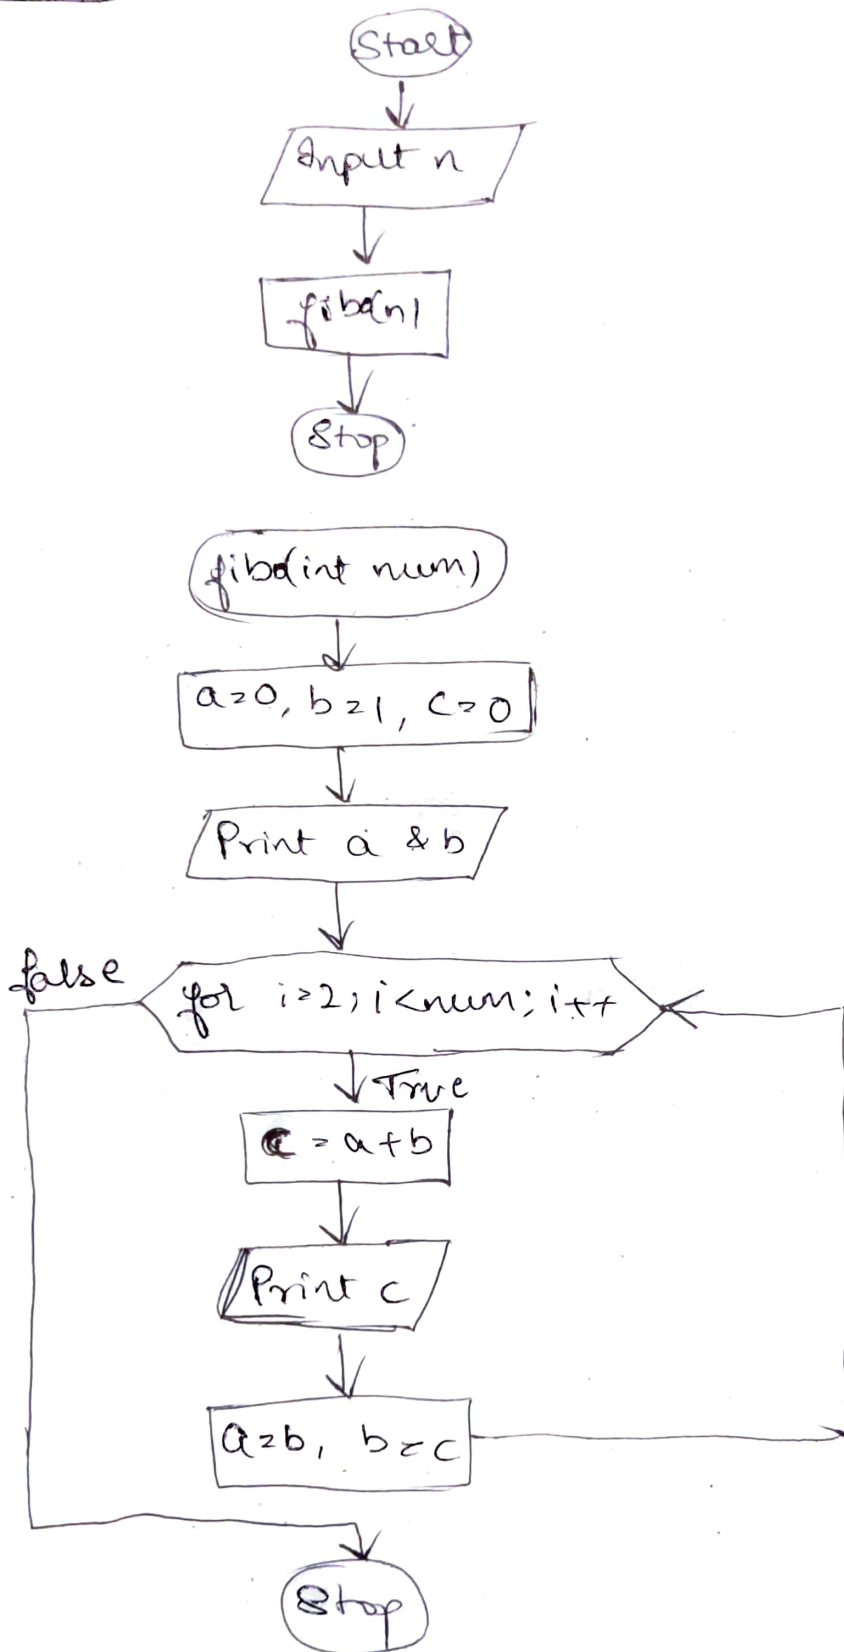 Start
Input n
fibo(n)
Stop
fibo(int num)
a=0, b=1, c=0
Print a & b
false
for i=2; i<num; i++
True
c = a+b
Print c
a=b, b=c
Stop